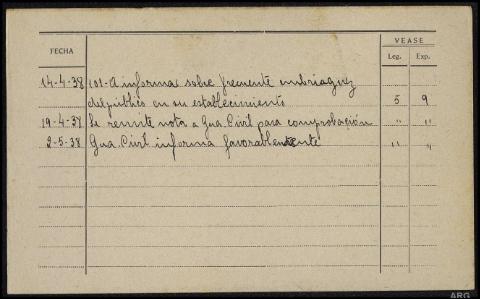 VEASE
FECHA Leg. Exp.
14-4-38 101-A informa sobre frecuente embriaguez
del público en su establecimiento 5 9
19-4-38 Se remite nota a Gua. Civil para comprobación " "
2-5-38 Gua. Civil informa favorablemente " "
ARG